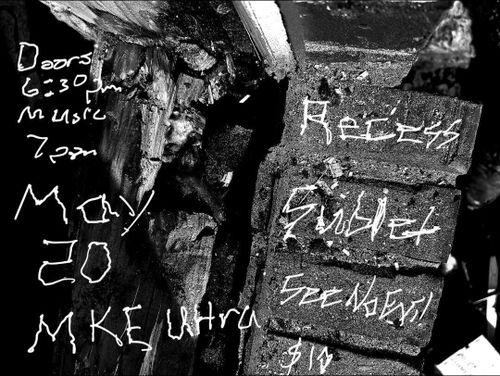 Doors
6:30pm
Music
7pm
May
20
MKE Ultra
Recess
See No Evil
$10